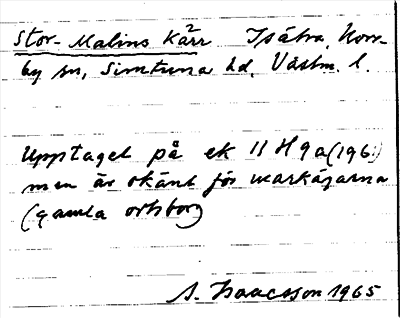 Stor-Malins Kärr Isätra, Norr-
by sn, Simtuna hd, Västm. l.
Upptaget på ek 11 H 9a (196
men är okänt för markägarna
(gamla ortsbor)
S. Isaacsson 1965